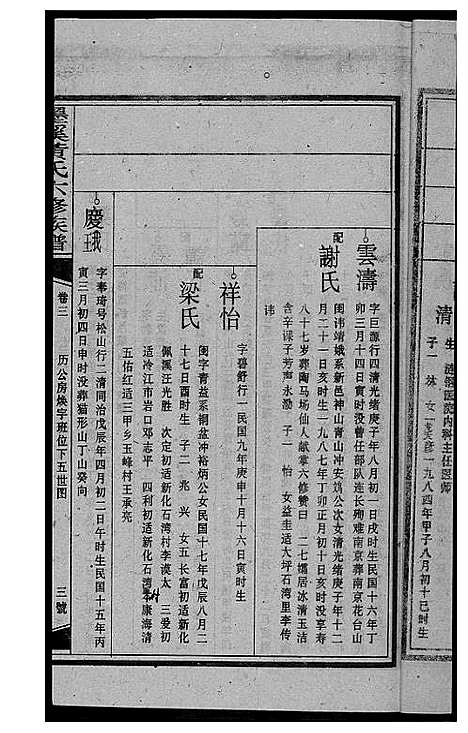 清
生
子一 林 女一 一九八四年甲子八月初十巳时生
雲濤
字巨源行四清光绪庚子年八月初一日戌时生民国十六年丁
卯三月十四日寅时没曾任部队连长殉难南京葬南京花台山
配
謝氏
闺讳靖娥系新邑神山青山冲安笃公次女清光绪庚子年十二
月二十一日亥时生一九八七年丁卯正月初十日亥时没享寿
八十七岁葬陶马场仙人献掌六修赞曰 二七孀居冰清玉洁
含辛课子芳声永渤 子一 怡 女益圭适大坪石湾里李传
讳
祥怡
字碧舒行一民国九年庚申十月十六日寅时生
配
梁氏
闺字青益系铜盆冲裕炳公女民国十七年戊辰八月二
十七日酉时生 子二 亮 兴 女五长富初适新化
佩溪汪光胜 次定初适新化石湾村李漠太 三爱初
适冷江市岩口邓志平 四利初适新化石湾李康海清
五佑红适三甲乡玉峰村王承亮
慶珴
字奉琦号松山行二清同治戊辰年四月初二日午时生民国十五年丙
寅三月初四日申时没葬猫形山丁山癸向
墨溪黄氏六修族谱
卷三
历公房焕字班位下五世图
三號